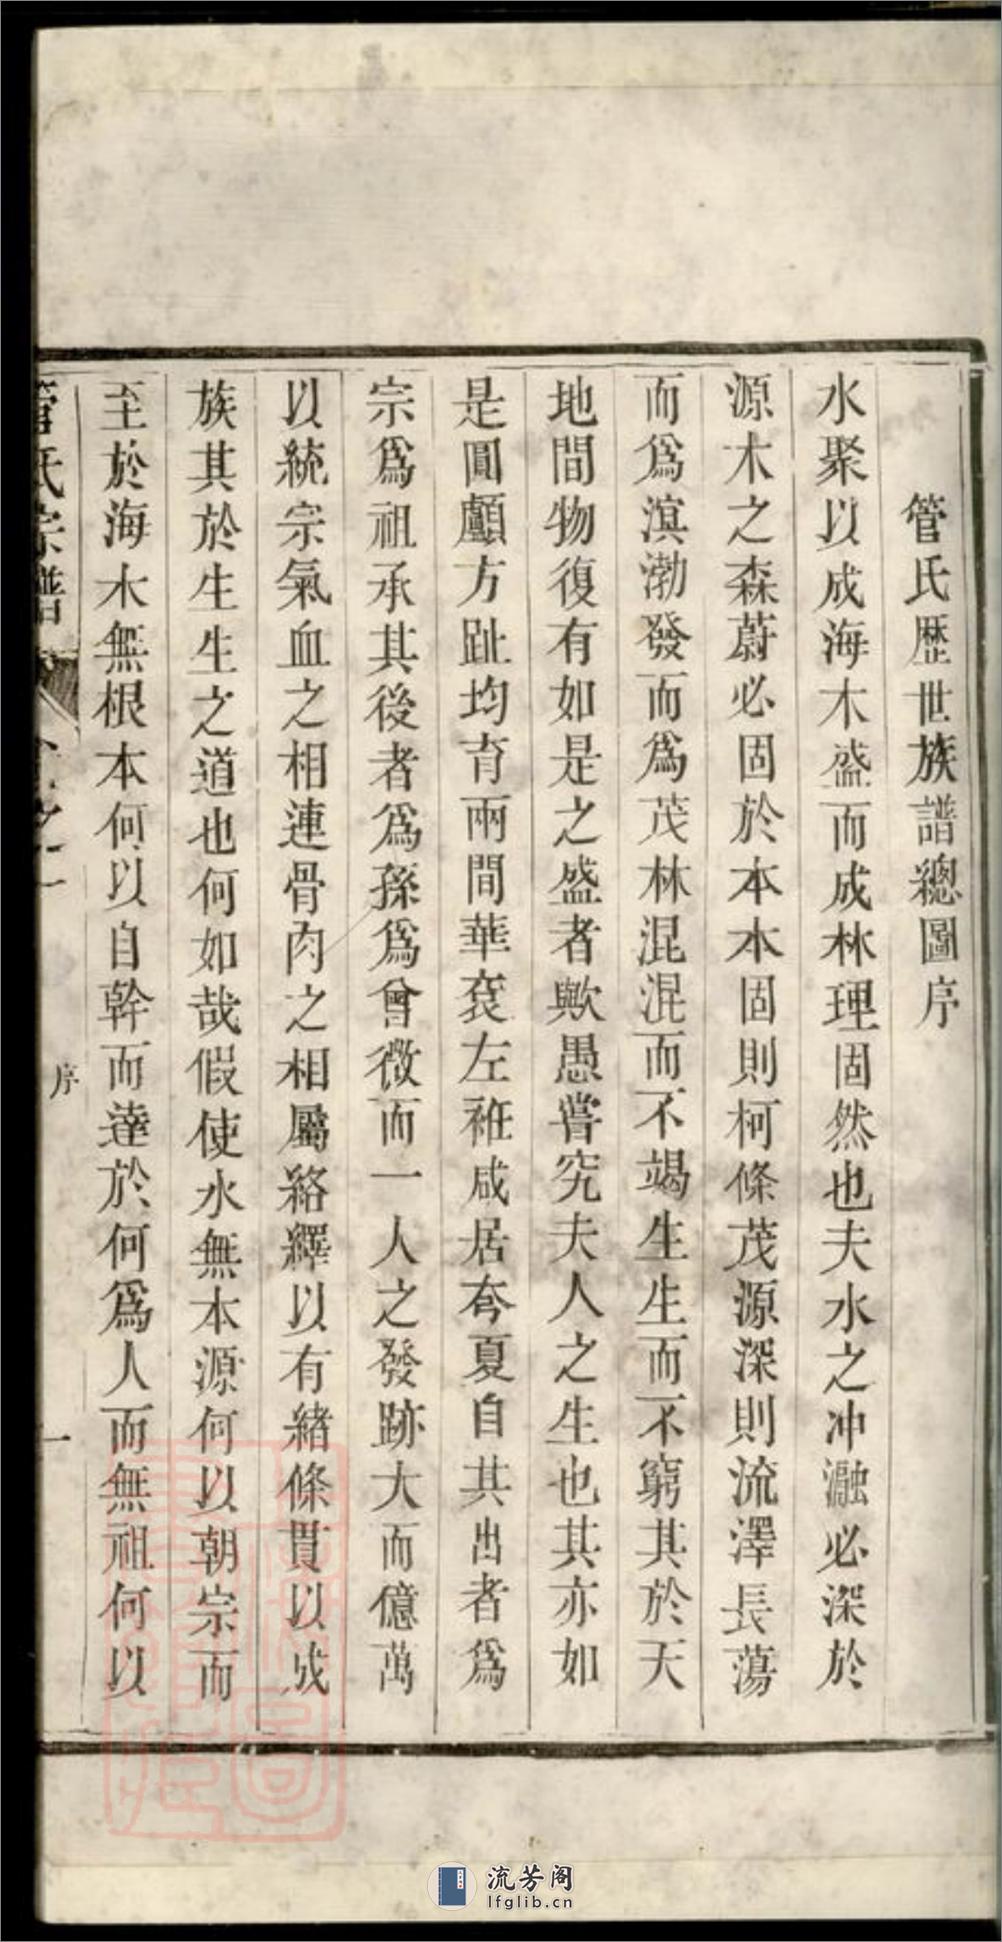 管氏歷世族譜總圖序
水聚以成海木盛而成林理固然也夫水之冲瀜必深於
源木之森蔚必固於本本固則柯條茂源深則流澤長蕩
而爲溟渤發而爲茂林混混而不竭生生而不窮其於天
地間物復有如是之盛者歟愚嘗究夫人之生也其亦如
是圓顱方趾均育兩間華袞左袵咸居夸夏自其出者爲
宗爲祖承其後者爲孫爲曾微而一人之發跡大而億萬
以統宗氣血之相連骨肉之相屬絡繹以有緒條貫以成
族其於生生之道也何如哉假使水無本源何以朝宗而
至於海木無根本何以自幹而達於何爲人而無祖何以
管氏宗譜 之一 序 一
流芳阁
lfglib.cn